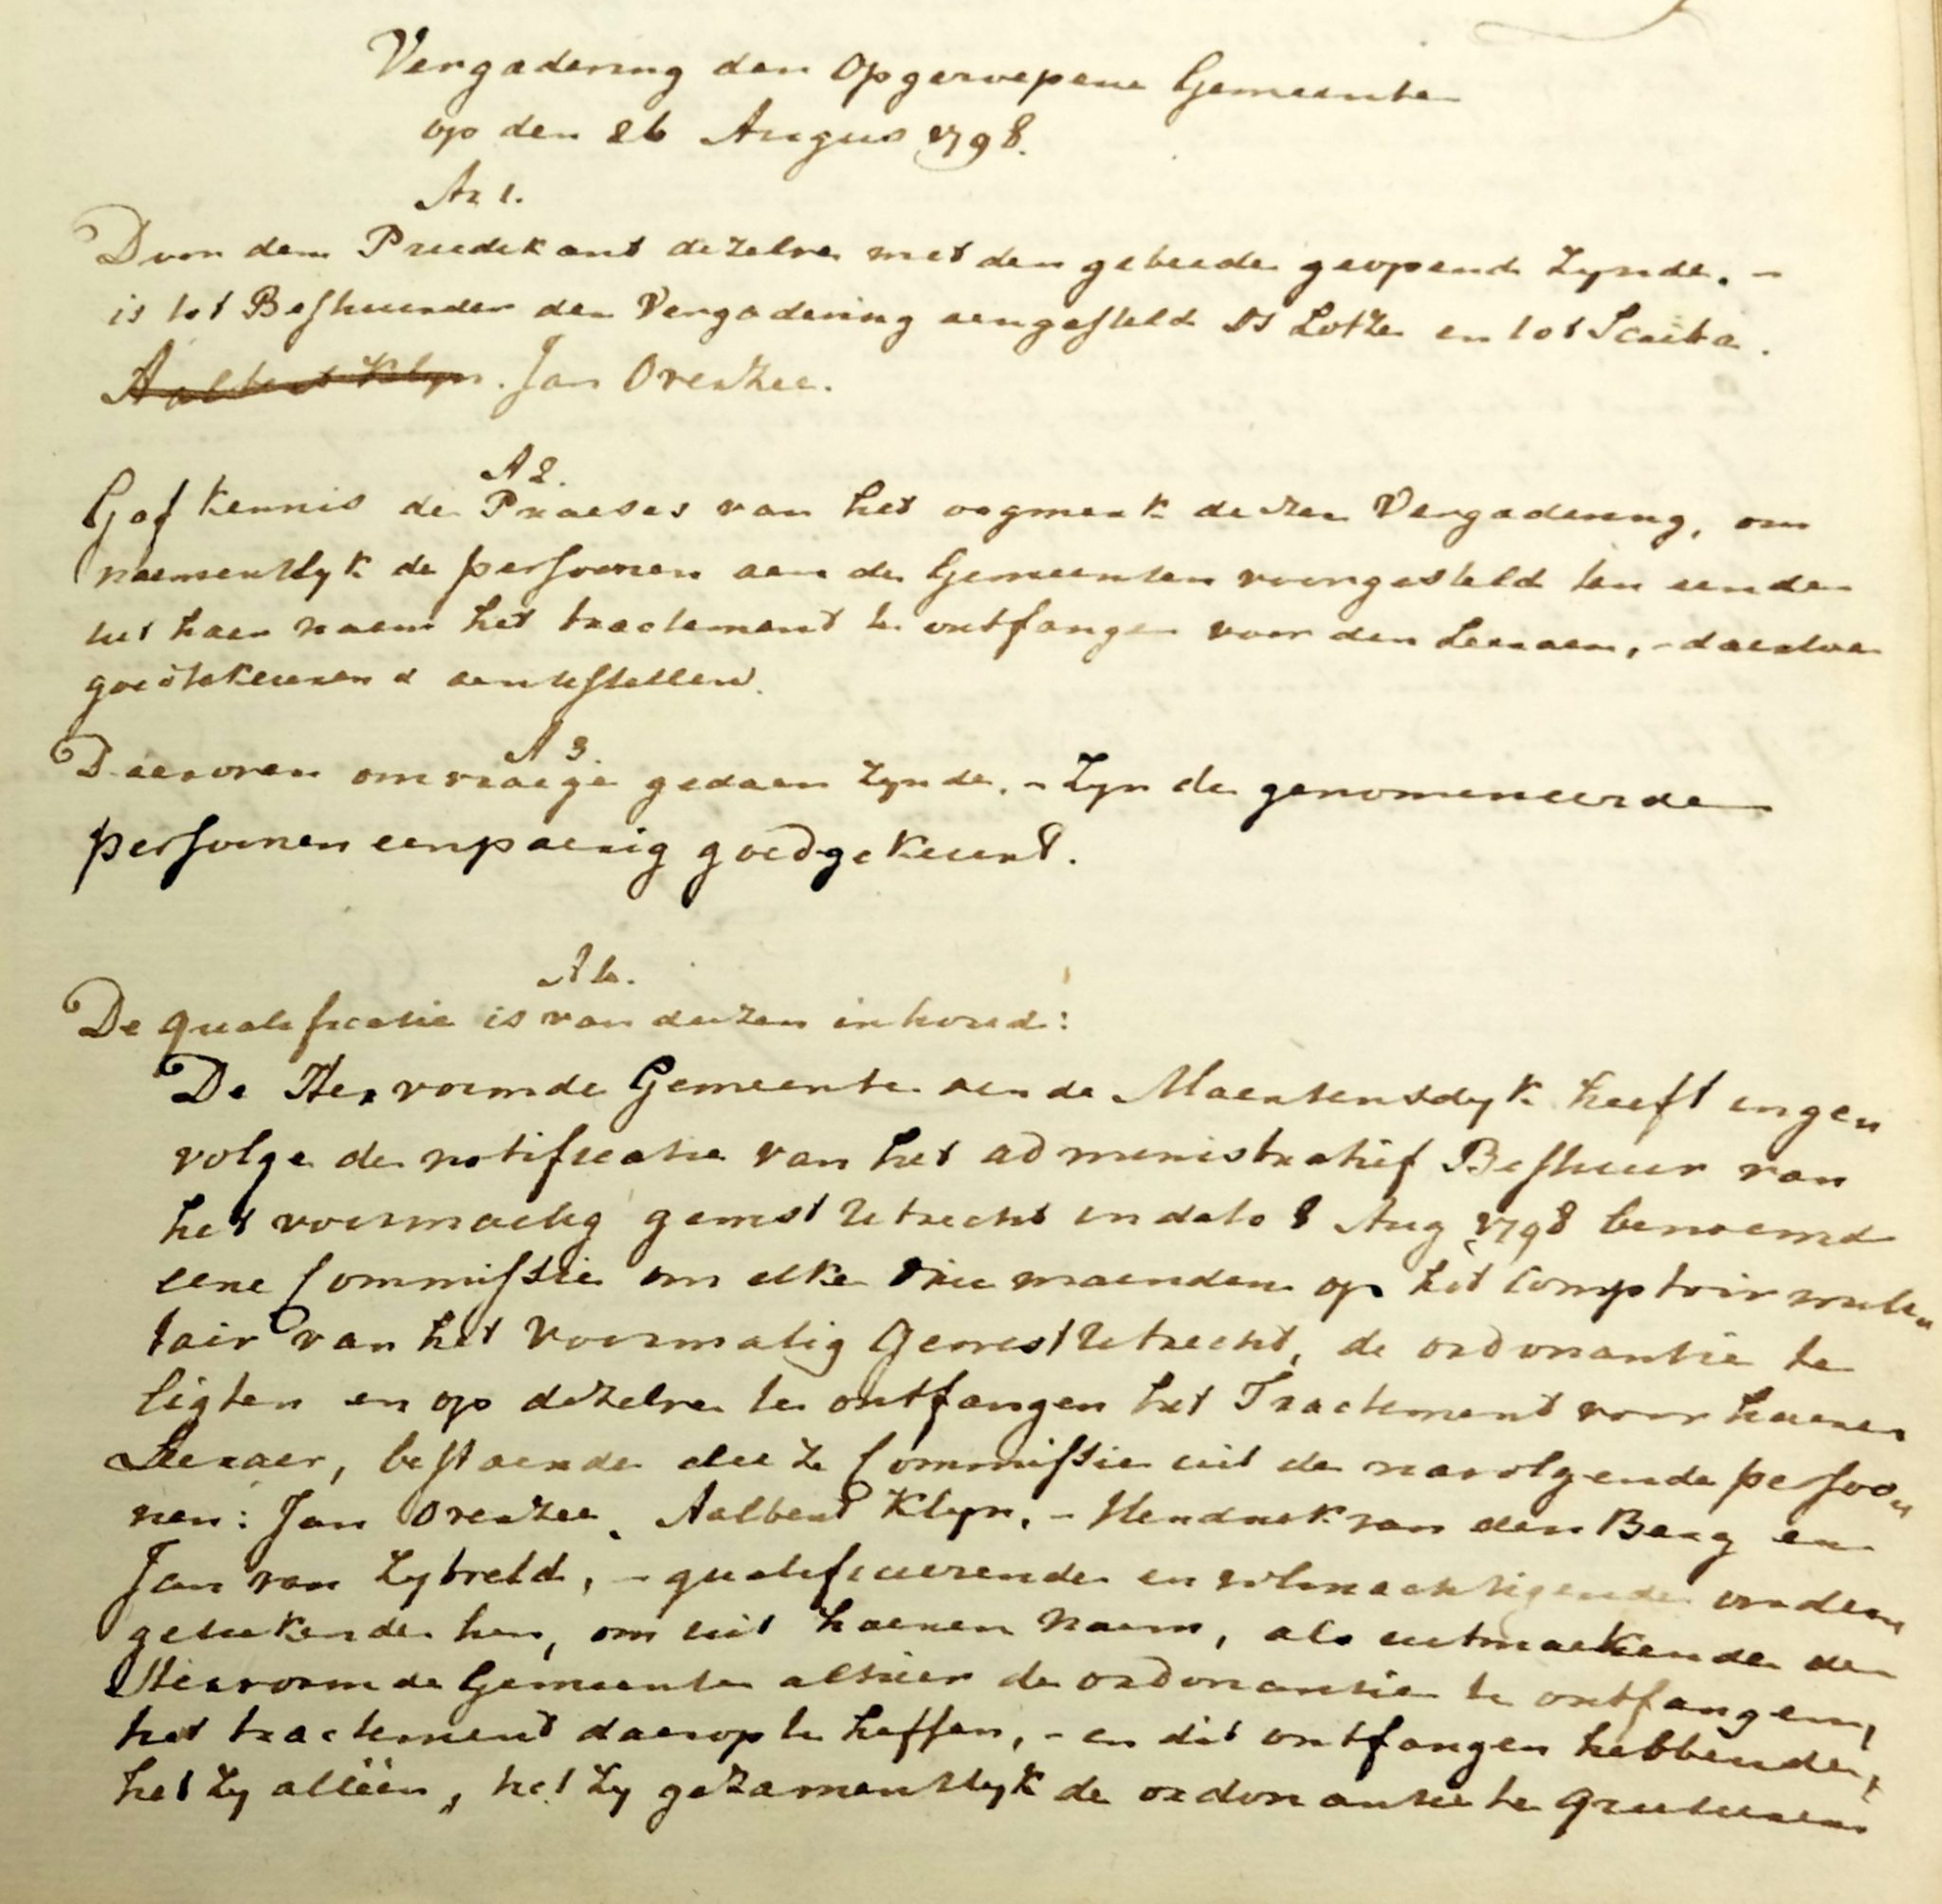 Vergadering der Opgeroepene Gemeente
op den 26 Augus 1798.
Ar 1.
Door den Preedekant dezelve met den gebeede geopend zynde. -
is tot Bestuurder der Vergadering aengesteld Ds Lotze en tot Scriba.
Aalbert Klyn. Jan Overzee.
A 2.
Gaf kennis de Praeses van het oogmerk dezer Vergadering, om
naementlyk de persoonen aen de Gemeenten voorgesteld ten einde
uit haer naem het tractement te ontfangen voor den Leeraer, - daertoe
goedtekeuren & aentestellen.
A 3.
Daerover omvraege gedaen zynde. - Zyn de genomeneerde
persoonen eenpaerig goedgekeurd.
A 4.
De qualificatie is van dezen inhoud:
De Hervormde Gemeente aen de Maertensdyk heeft inge„
volge de notificatie van het administratief Bestuur van
het voormaelig gewest Utrecht in dato 8 Aug 1798 benoemd
eene Commissie om elke drie maenden op het Comptoir
van het voormalig Gewest Utrecht, de ordonantie te
ligten en op dezelve te ontfangen het Tractement voor haeren
Leeraer, bestaende deeze Commissie uit de navolgende persoo„
nen: Jan Overzee, Aalbert Klyn, - Hendrik van den Berg en
Jan van Zytveld, - qualificeerende en volmachtigende onder„
getekende hen, om uit haeren naem, als uitmaekende de
Hervormde Gemeente alhier de ordonantie te ontfangen,
het tractement daerop te heffen, - en dit ontfangen hebbende,
het zy alléén, het zy gezamentlyk de ordonantie te quiteeren